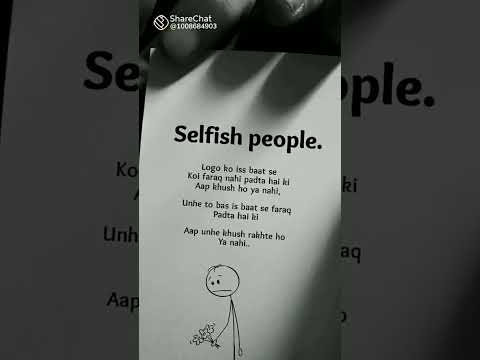 ShareChat
@1008684903
Selfish people.
Logo ko iss baat se
Koi faraq nahi padta hai ki
Aap khush ho ya nahi,
Unhe to bas is baat se faraq
Padta hai ki
Aap unhe khush rakhte ho
Ya nahi..
Self
ople.
Unhe
aq
Aap
ho